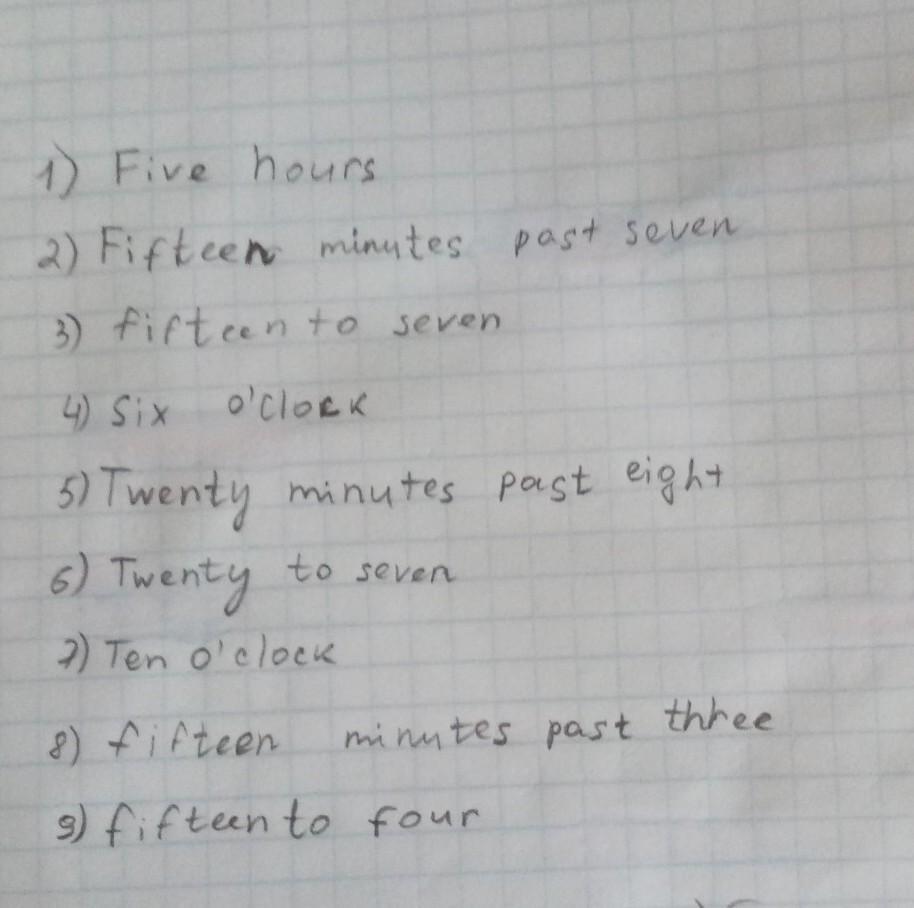 1) Five hours
2) Fifteen minutes past seven
3) fifteen to seven
4) Six o'clock
5) Twenty minutes past eight
6) Twenty to seven
7) Ten o'clock
8) fifteen minutes past three
9) fifteen to four